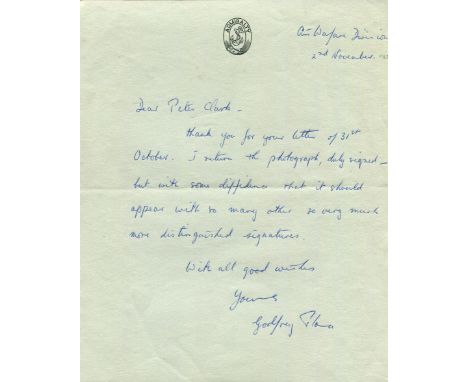 ADMIRALTY
Air Warfare Division
2nd November.
Dear Peter Clark -
Thank you for your letter of 31st
October. I return the photograph, duly signed -
but with some diffidence that it should
appear with so many other so very much
more distinguished signatures.
With all good wishes
Yours
Godfrey